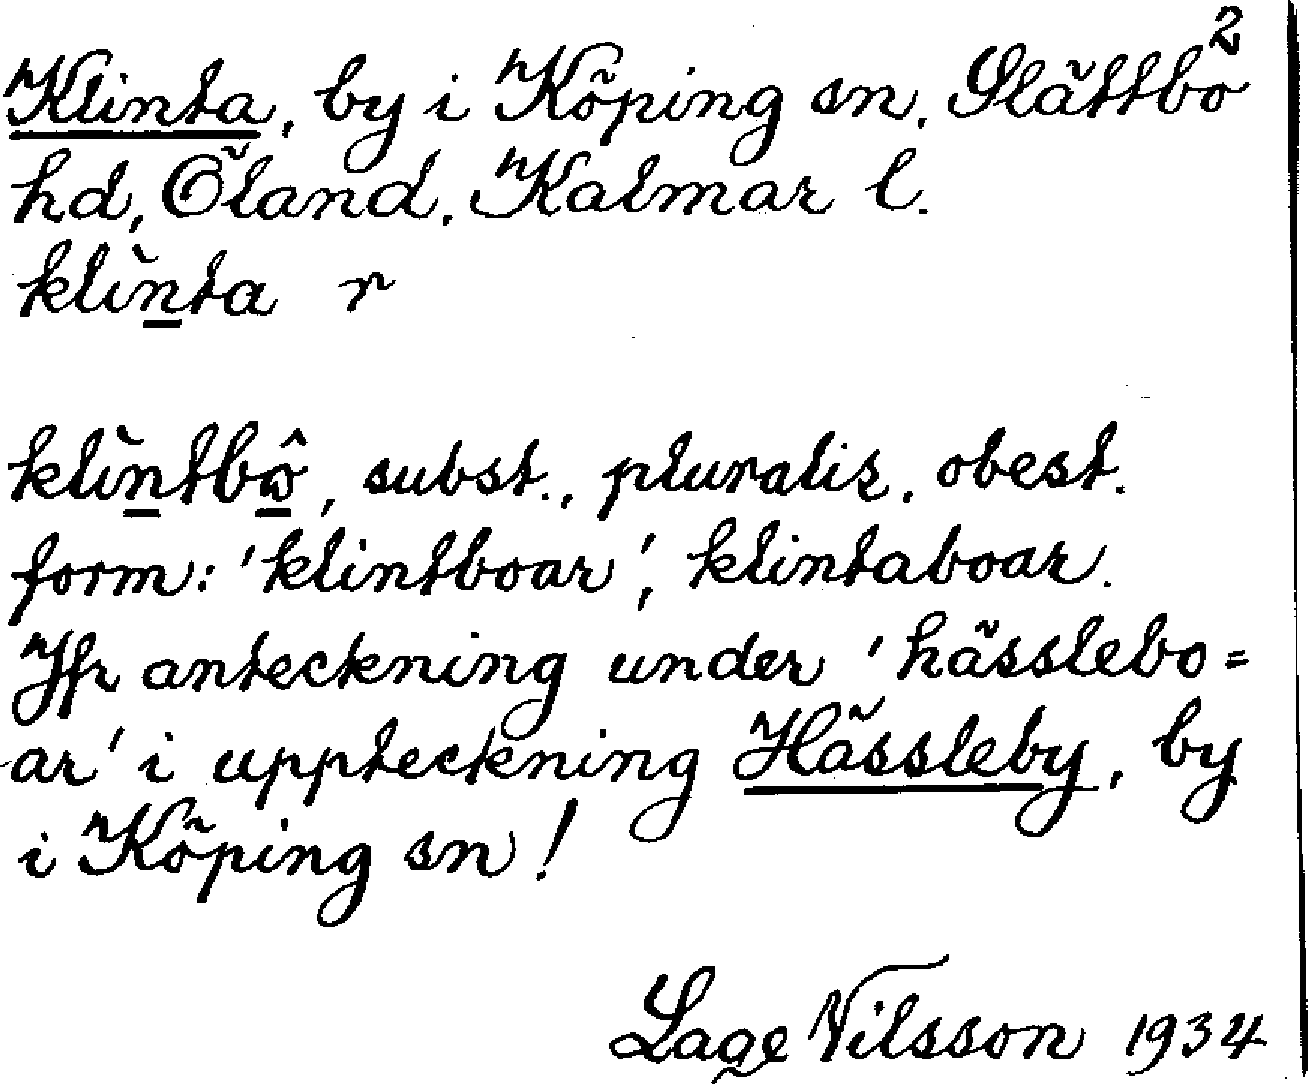 2
Klinta, by i Köping sn. Slättbo
hd, Öland, Kalmar l.
klìnta r
klìntbô, subst., pluralis, obest.
form: 'klintboar', klintaboar.
Jfr anteckning under 'hässlebo=
ar' i uppteckning Hässleby, by
i Köping sn!
Lage Nilsson 1934